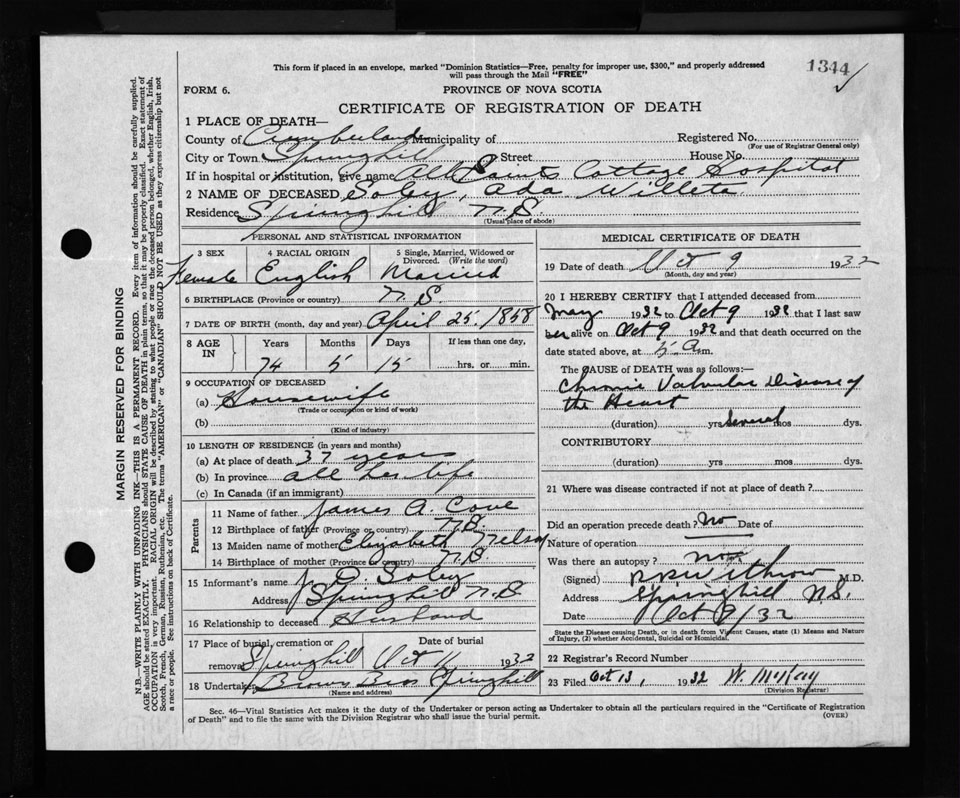 This form if placed in an envelope, marked "Dominion Statistics—Free, penalty for improper use, $300," and properly addressed
will pass through the Mail "FREE"
1344
FORM 6.
PROVINCE OF NOVA SCOTIA
CERTIFICATE OF REGISTRATION OF DEATH
1 PLACE OF DEATH—
County of Cumberland Municipality of Registered No.
(For use of Registrar General only)
City or Town Springhill Street House No.
If in hospital or institution, give name All Saints Cottage Hospital
2 NAME OF DECEASED Soley, Ada Willeta
Residence Springhill N.S.
(Usual place of abode)
PERSONAL AND STATISTICAL INFORMATION
3 SEX 4 RACIAL ORIGIN 5 Single, Married, Widowed or
Divorced. (Write the word)
Female English Married
6 BIRTHPLACE (Province or country) N.S.
7 DATE OF BIRTH (month, day and year) April 25. 1858
8 AGE IN Years Months Days If less than one day,
74 5 15 hrs. or min.
9 OCCUPATION OF DECEASED
(a) Housewife
(Trade or occupation or kind of work)
(b)
(Kind of industry)
10 LENGTH OF RESIDENCE (in years and months)
(a) At place of death 37 years
(b) In province all her life
(c) In Canada (if an immigrant)
Parents
11 Name of father James A. Cove
12 Birthplace of father (Province or country) N.S.
13 Maiden name of mother Elizabeth Nelson
14 Birthplace of mother (Province or country) N.S.
15 Informant's name J. D. Soley
Address Springhill N.S
16 Relationship to deceased Husband
17 Place of burial, cremation or Date of burial
removal Springhill Oct 11 1932
18 Undertaker Brown Bros Springhill
(Name and address)
MEDICAL CERTIFICATE OF DEATH
19 Date of death Oct 9 1932
(Month, day and year)
20 I HEREBY CERTIFY that I attended deceased from
May 1932 to Oct 9 1932 that I last saw
her alive on Oct 9 1932 and that death occurred on the
date stated above, at 5 A m.
The CAUSE of DEATH was as follows:—
Chronic Valvular Disease of
the Heart
(duration) yrs Several mos dys.
CONTRIBUTORY
(duration) yrs mos dys.
21 Where was disease contracted if not at place of death?
Did an operation precede death? No Date of
Nature of operation
Was there an autopsy? no
(Signed) Withrow M.D.
Address Springhill N.S.
Date Oct 9/32
State the Disease causing Death, or in death from Violent Causes, state (1) Means and Nature
of Injury, (2) whether Accidental, Suicidal or Homicidal.
22 Registrar's Record Number
23 Filed Oct 13, 1932 W. McKay
(Division Registrar)
Sec. 46—Vital Statistics Act makes it the duty of the Undertaker or person acting as Undertaker to obtain all the particulars required in the "Certificate of Registration
of Death" and to file the same with the Division Registrar who shall issue the burial permit.
(OVER)
MARGIN RESERVED FOR BINDING
N.B.—WRITE PLAINLY WITH UNFADING INK—THIS IS A PERMANENT RECORD. Every item of information should be carefully supplied.
AGE should be stated EXACTLY. PHYSICIANS should STATE CAUSE OF DEATH in plain terms, so that it may be properly classified. Exact statement of
OCCUPATION is very important. RACIAL ORIGIN will be described by stating to what people or race the deceased person belonged, whether English, Irish,
Scotch, French, German, Russian, Ruthenian, etc. The terms "AMERICAN" or "CANADIAN" SHOULD NOT BE USED as they express citizenship but not
a race or people. See instructions on back of Certificate.